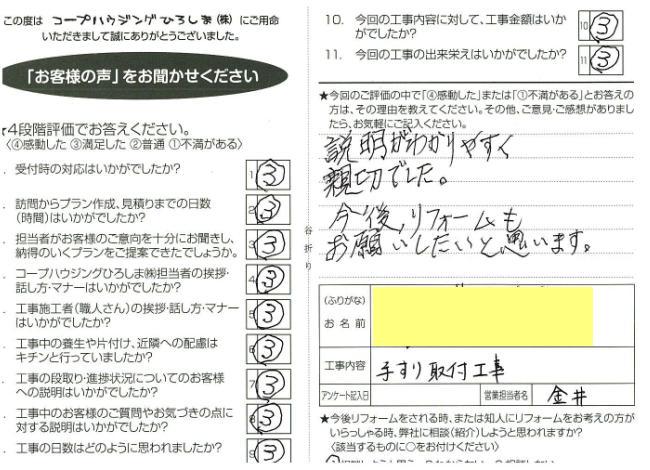 この度は コープハウジングひろしま(株) にご用命
いただきまして誠にありがとうございました。
「お客様の声」をお聞かせください
4段階評価でお答えください。
〈④感動した ③満足した ②普通 ①不満がある〉
. 受付時の対応はいかがでしたか? 1 ③
. 訪問からプラン作成、見積りまでの日数
(時間)はいかがでしたか? 2 ③
. 担当者がお客様のご意向を十分にお聞きし、
納得のいくプランをご提案できたでしょうか。 3 ③
. コープハウジングひろしま㈱担当者の挨拶・
話し方・マナーはいかがでしたか? 4 ③
. 工事施工者(職人さん)の挨拶・話し方・マナー
はいかがでしたか? 5 ③
. 工事中の養生や片付け、近隣への配慮は
キチンと行っていましたか? 6 ③
. 工事の段取り・進捗状況についてのお客様
への説明はいかがでしたか? 7 ③
. 工事中のお客様のご質問やお気づきの点に
対する説明はいかがでしたか? 8 ③
. 工事の日数はどのように思われましたか? 9 ③
谷折り
10. 今回の工事内容に対して、工事金額はいか
がでしたか? 10 ③
11. 今回の工事の出来栄えはいかがでしたか? 11 ③
★今回のご評価の中で「④感動した」または「①不満がある」とお答えの
方は、その理由を教えてください。その他、ご意見・ご感想がありまし
たら、お気軽にご記入ください。
説明がわかりやすく
親切でした。
今後、リフォームも
お願いしたいと思います。
(ふりがな)
お名前
工事内容 手すり取付工事
アンケート記入日 営業担当者名 金井
★今後リフォームをされる時、または知人にリフォームをお考えの方が
いらっしゃる時、弊社に相談(紹介)しようと思われますか?
〈該当するものに○をお付けください〉